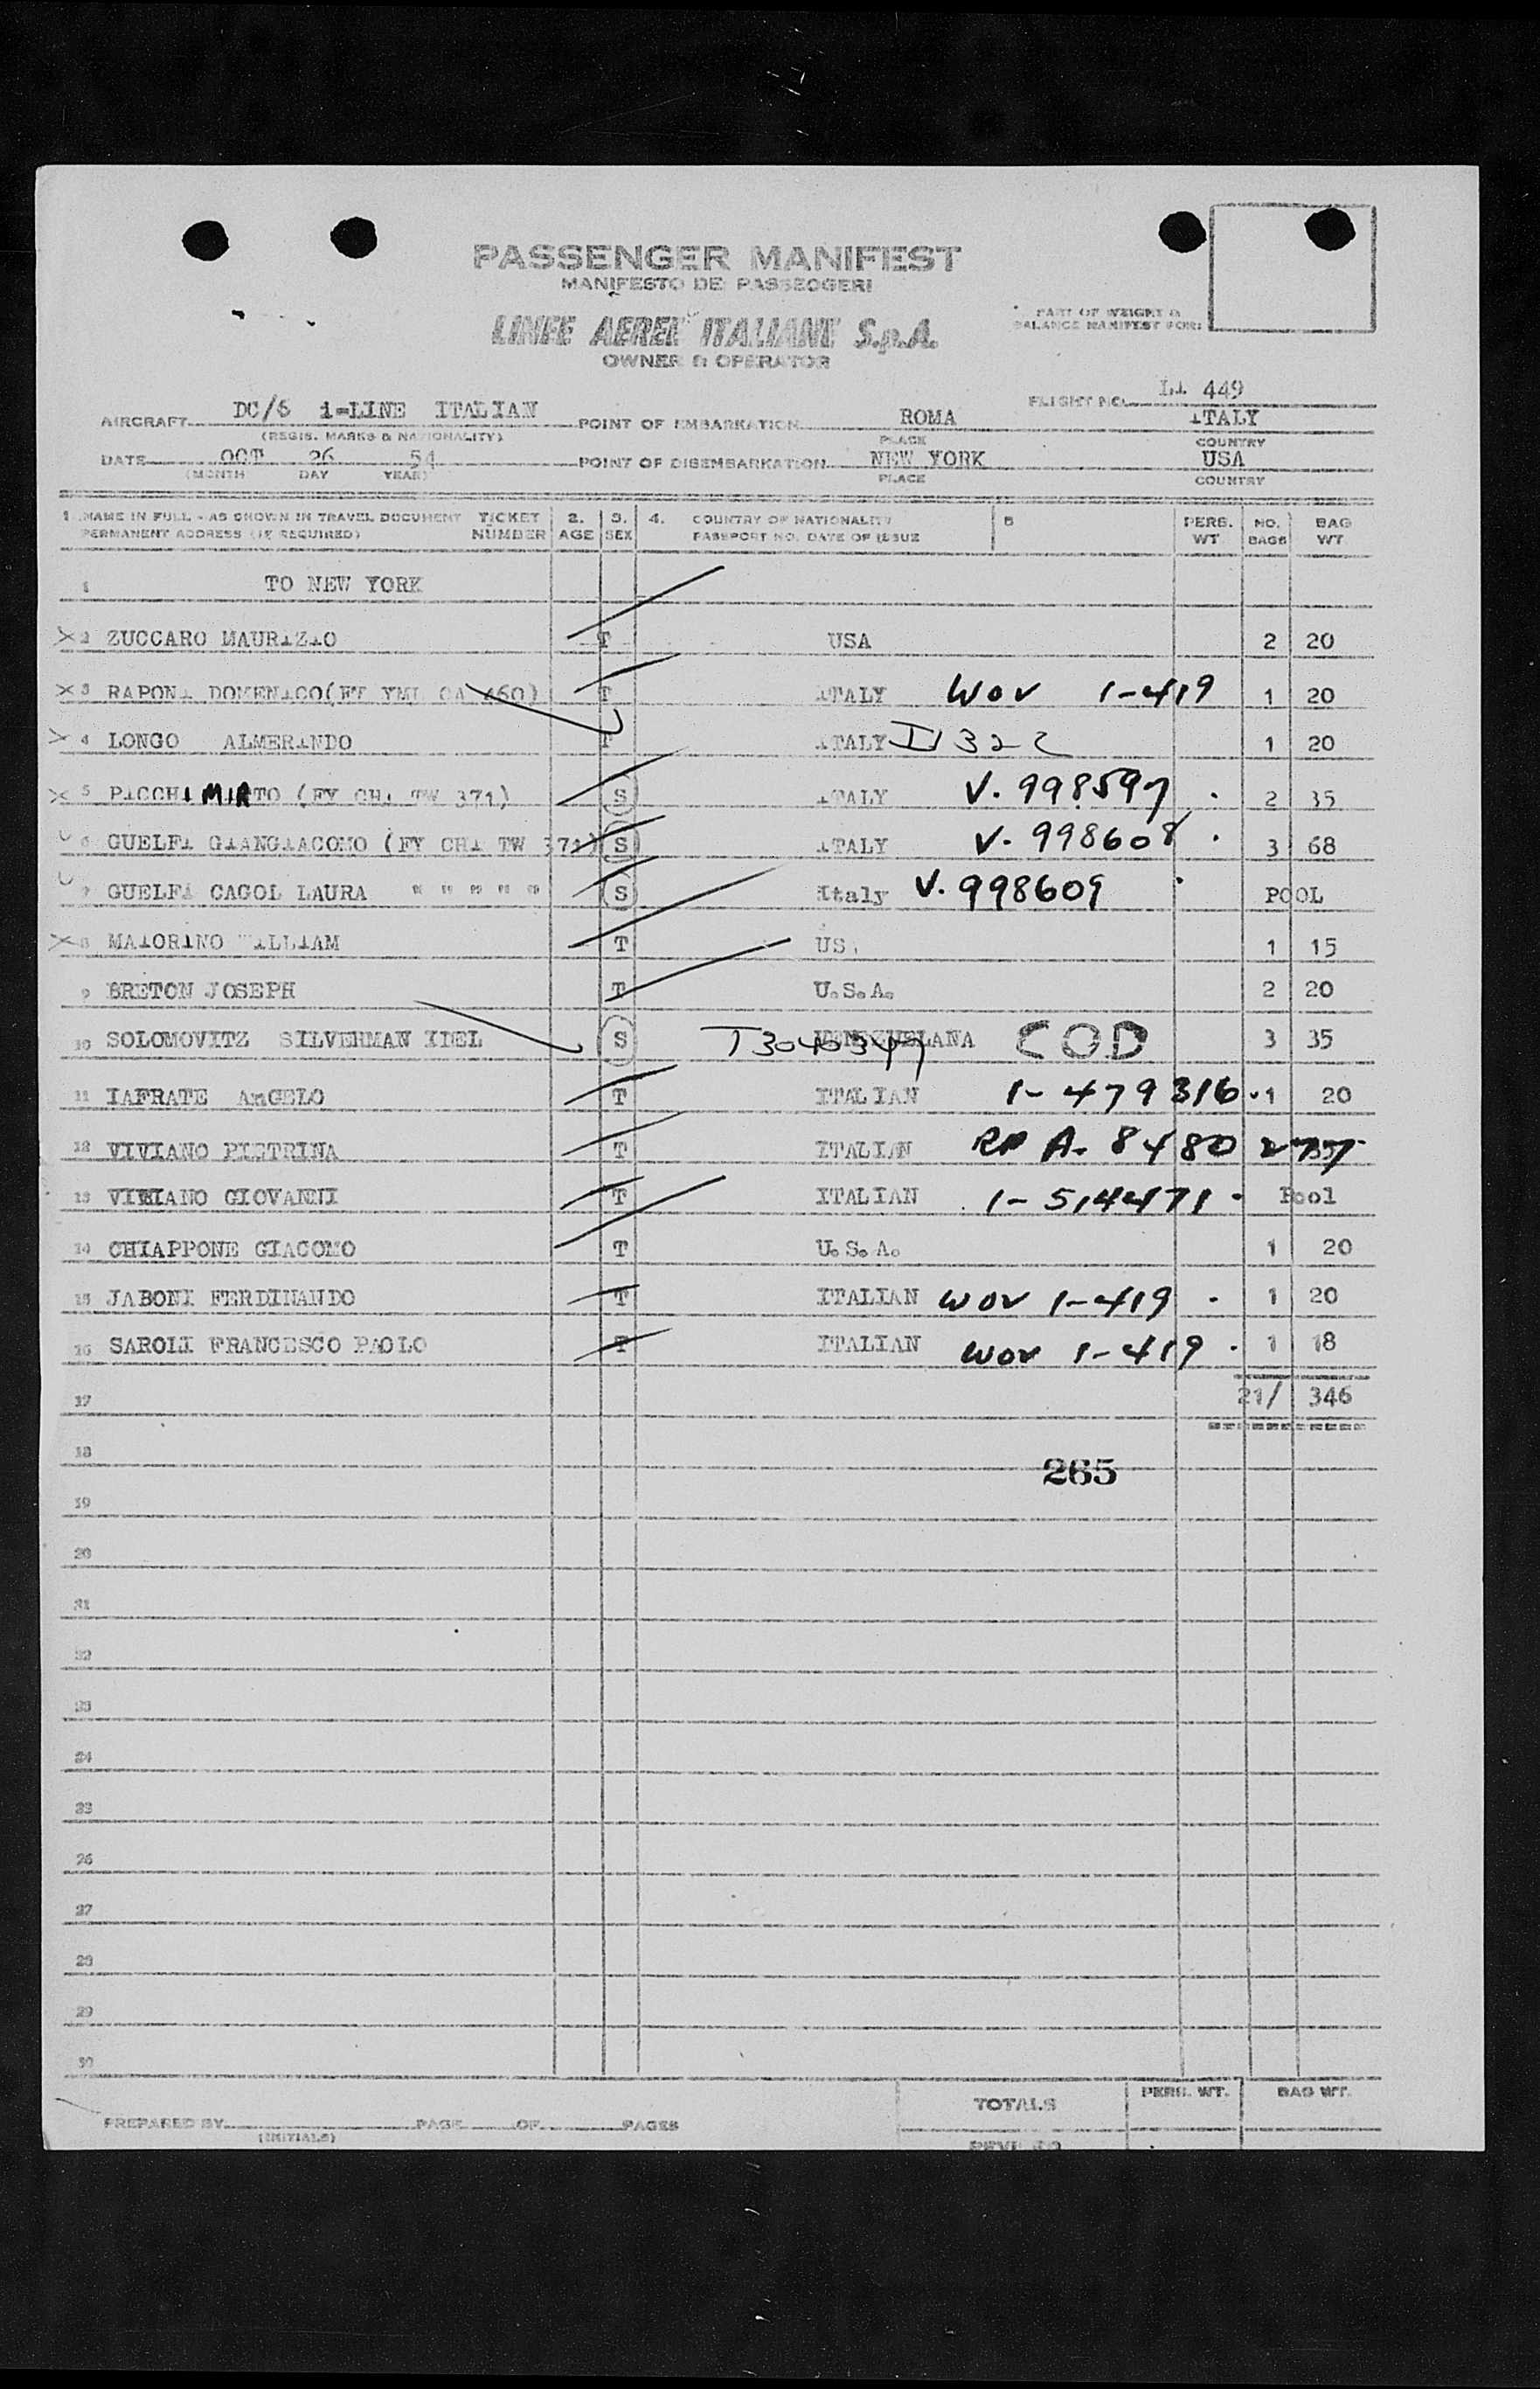 PASSENGER MANIFEST
MANIFESTO DEI PASSEGGERI
LINEE AEREE ITALIANE S.p.A.
OWNER & OPERATOR
PART OF WEIGHT &
BALANCE MANIFEST FOR:
FLIGHT NO. LI 449
AIRCRAFT DC/6 i-LINE ITALIAN POINT OF EMBARKATION ROMA ITALY
(REGIS. MARKS & NATIONALITY) PLACE COUNTRY
DATE OCT 26 54 POINT OF DISEMBARKATION NEW YORK USA
(MONTH DAY YEAR) PLACE COUNTRY
1. NAME IN FULL - AS SHOWN IN TRAVEL DOCUMENT TICKET 2. 3. 4. COUNTRY OF NATIONALITY 5 PERS. NO. BAG
PERMANENT ADDRESS (IF REQUIRED) NUMBER AGE SEX PASSPORT NO. DATE OF ISSUE WT BAGS WT
1 TO NEW YORK
2 ZUCCARO MAURIZIO T USA 2 20
3 RAPONI DOMENICO(FT YML CA 460) T ITALY WOV 1-419 1 20
4 LONGO ALMERINDO T ITALY 1 20
5 PICCHI MIRTO (FY CHI TW 371) S ITALY V. 998597 . 2 35
6 GUELFI GIANGIACOMO (FY CHI TW 371) S ITALY V. 998608 . 3 68
7 GUELFI CAGOL LAURA " " " " " S Italy V. 998609 . POOL
8 MAIORINO WILLIAM T US 1 15
9 BRETON JOSEPH T U.S.A. 2 20
10 SOLOMOVITZ SILVERMAN IDEL S T3040347 VENEZUELANA COD 3 35
11 IAFRATE AnGELO T ITALIAN 1-479316 . 1 20
12 VIVIANO PIETRINA T ITALIAN A. 8480 2 35
13 VIVIANO GIOVANNI T ITALIAN 1-514471 . Pool
14 CHIAPPONE GIACOMO T U.S.A. 1 20
15 JABONI FERDINANDO T ITALIAN WOV 1-419 . 1 20
16 SAROLI FRANCESCO PAOLO T ITALIAN WOV 1-419 . 1 18
17 21/ 346
18
265
19
20
21
22
23
24
25
26
27
28
29
30
TOTALS PERS. WT. BAG WT.
PREPARED BY PAGE OF PAGES
(INITIALS)